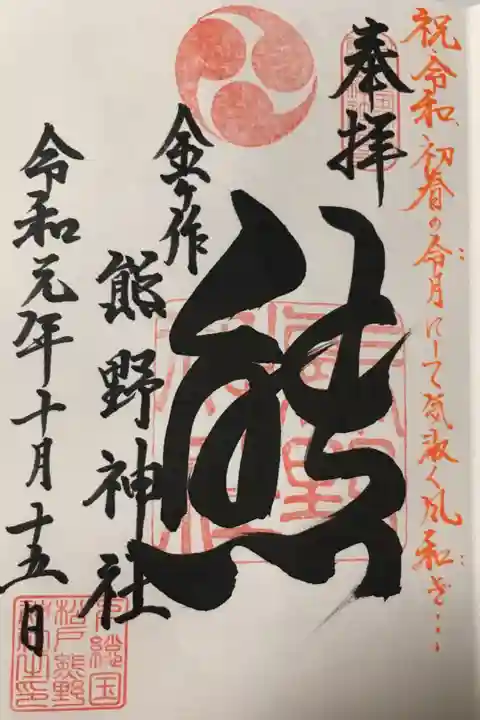 祝・令和、初春の令月にして気淑く風和ぎ・・・
奉拝
熊
金ケ作
熊野神社
令和元年十月十五日
下総国
松戸熊野